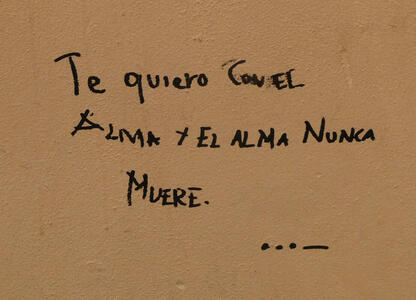 Te quiero CON EL
ALMA Y EL ALMA NUNCA
MUERE.
...—